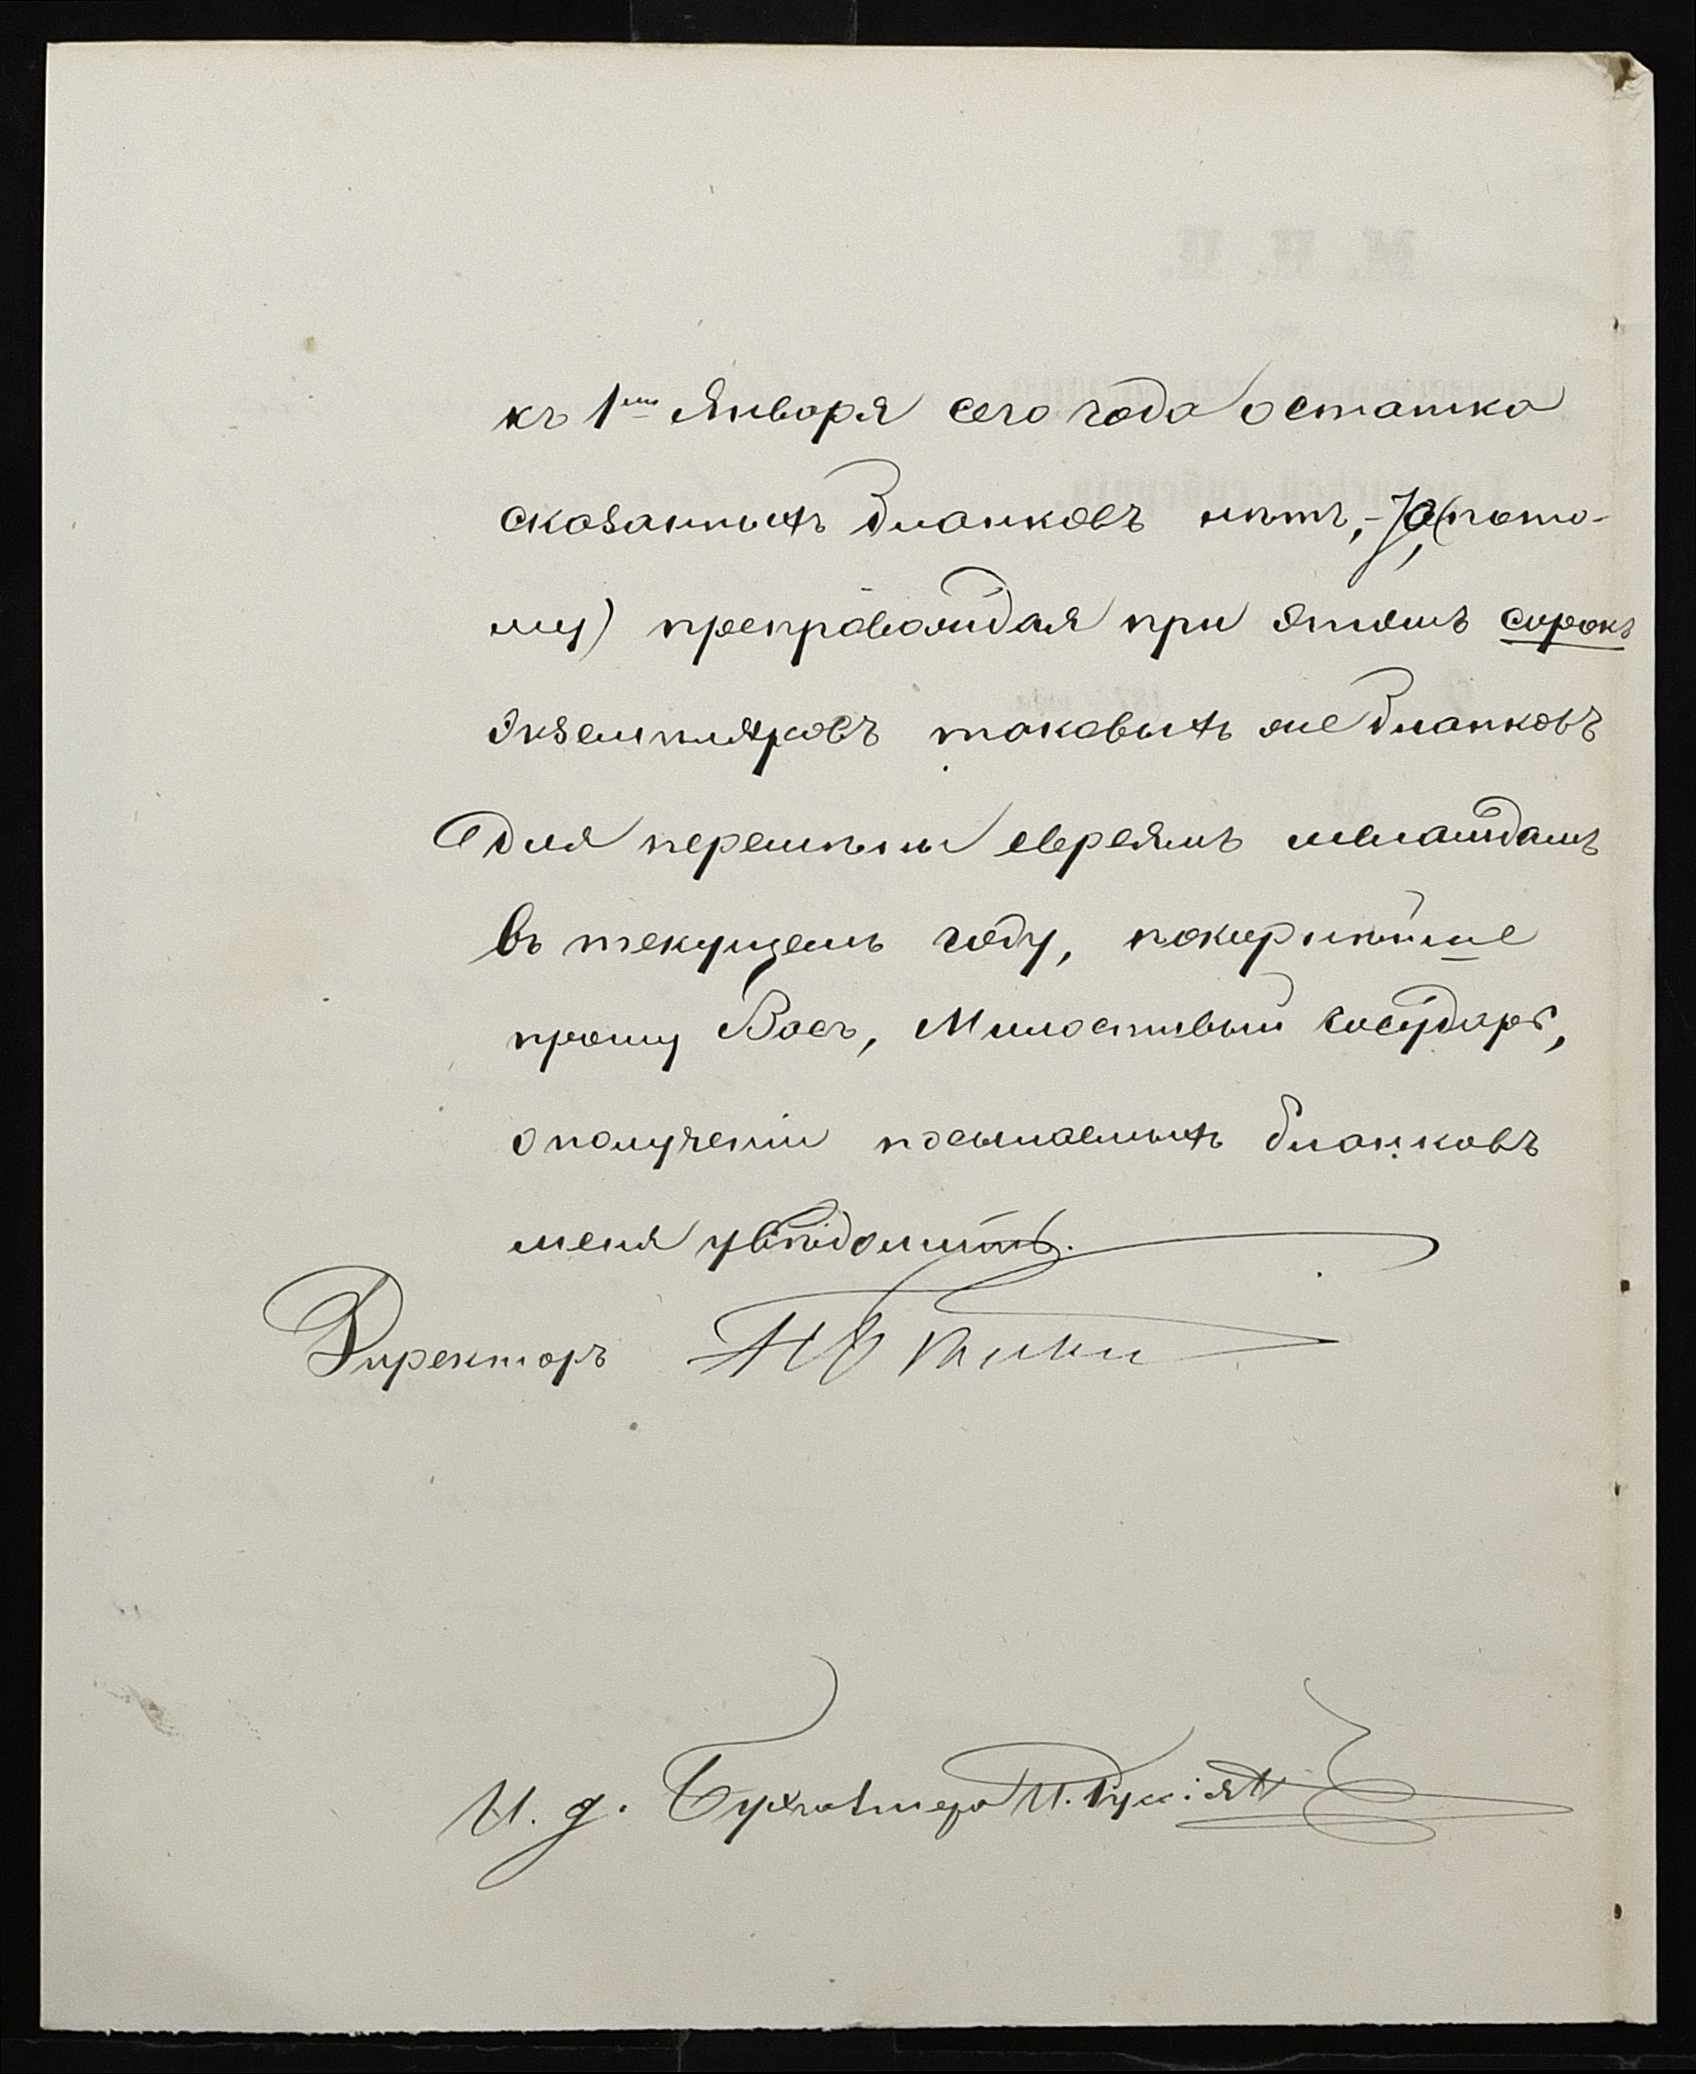 къ 1му Января сего года остатка
сказанныхъ бланковъ нѣтъ, - (пото-
му) препровождая при этомъ сорокъ
экземпляровъ таковыхъ же бланковъ
для евреямъ меламдамъ
въ текущемъ году, покорнѣйше
прошу Васъ, Милостивый Государь,
о полученіи посылаемыхъ бланковъ
меня увѣдомить.
Директоръ
И. д. Бухгалтера И.